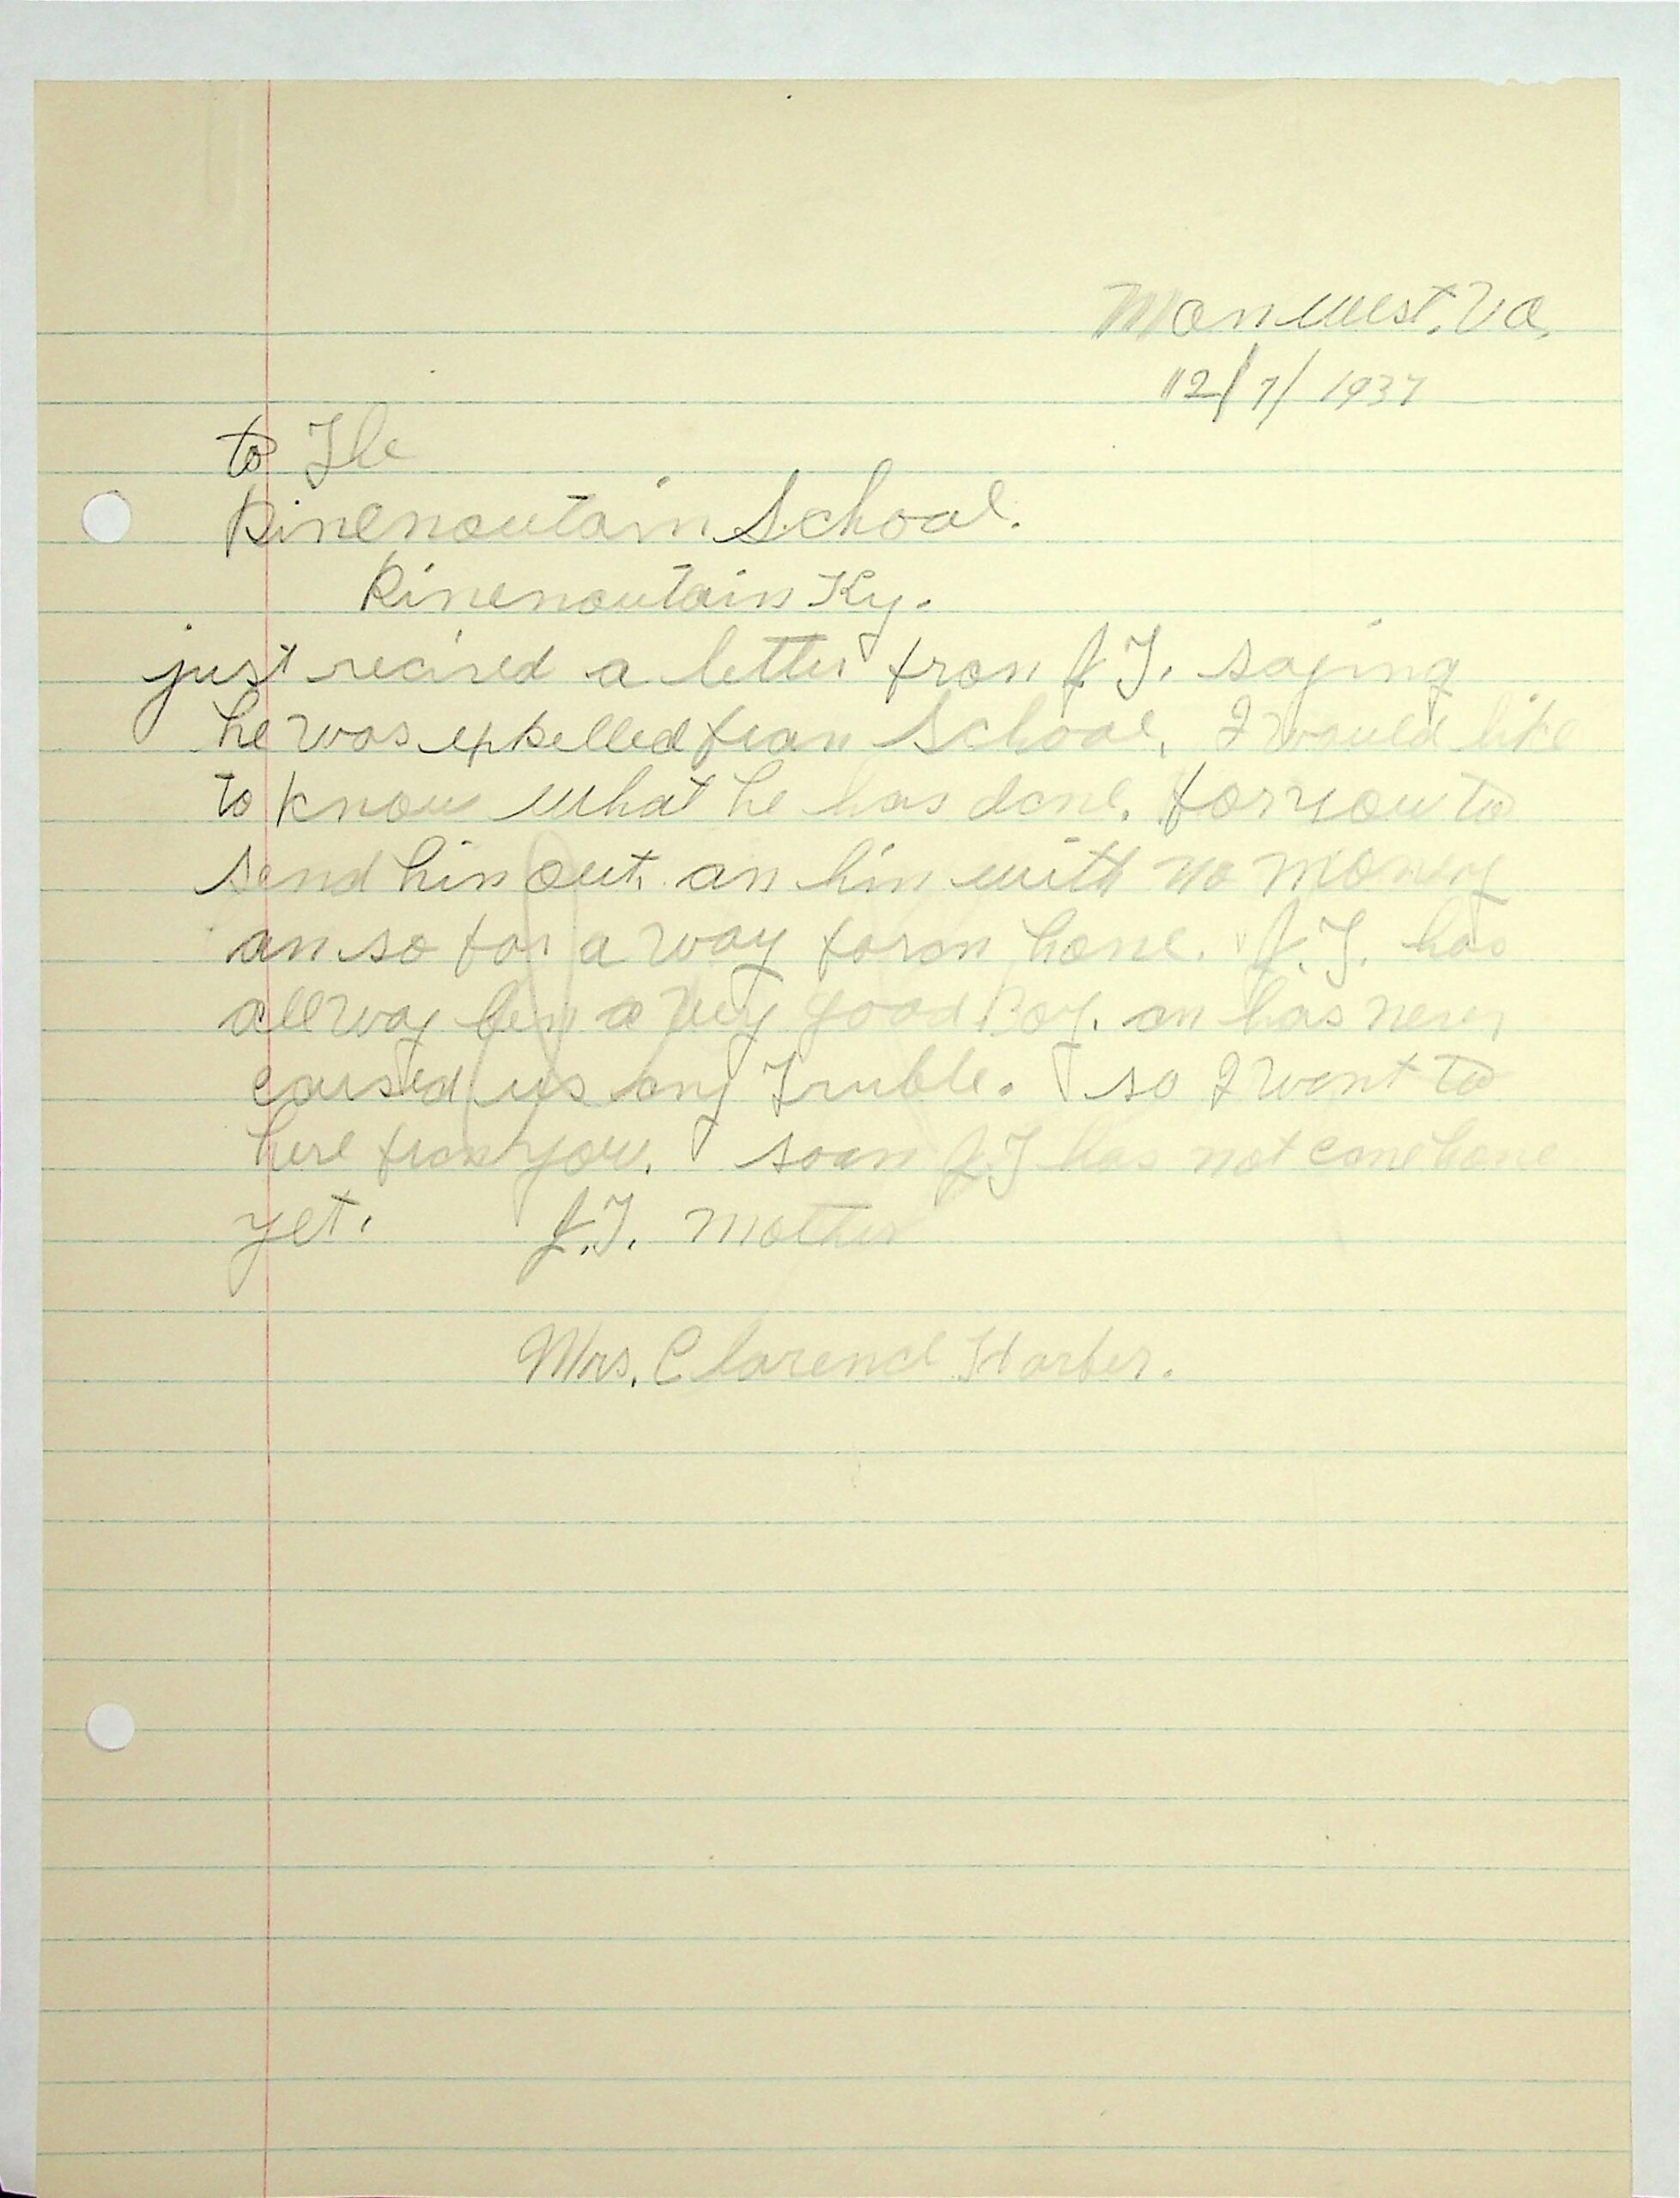 Man West. Va.
12/7/1937
to The
Pinemoutain School.
Pinemoutain Ky.
just recived a letter from J.T. saying
he was expelled from School, I would like
to know what he has done. for you to
send him out. an him with no money
an so far a way form home. J.T. has
allway ben a very good Boy. an has never
caused us any Truble. so I want to
here from you. soon J.T has not come home
yet. J.T. Mother
Mrs. Clarence Harber.